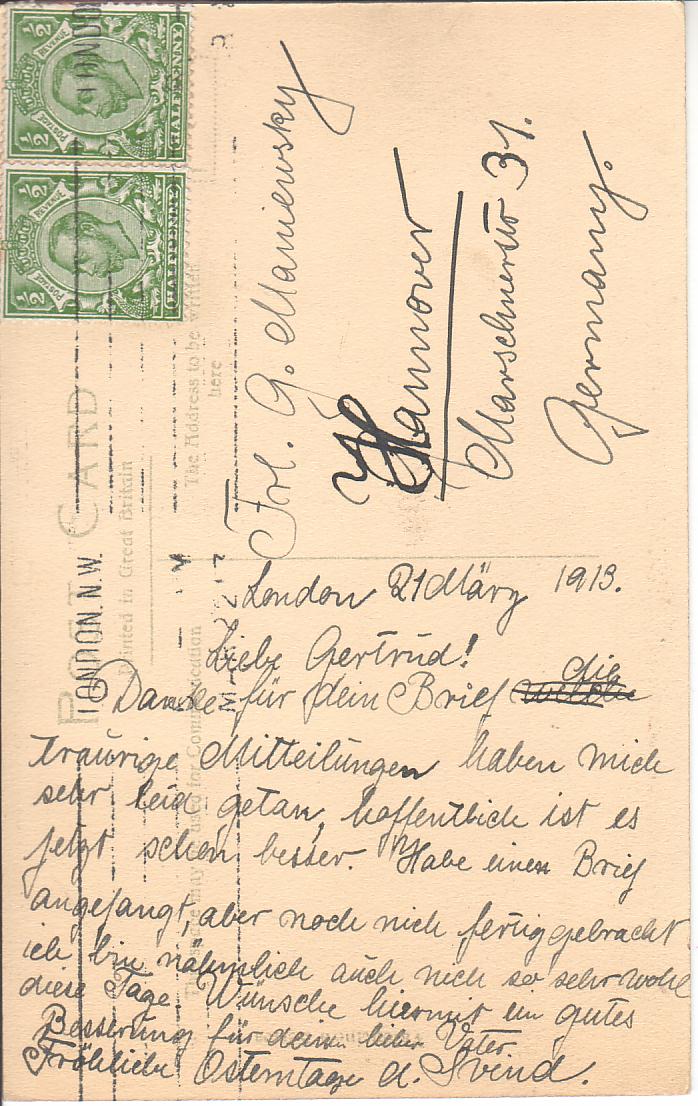 POST CARD
Printed in Great Britain
The Address to be written
here
LONDON. N.W.
POSTAGE REVENUE
½ ½
HALFPENNY
POSTAGE REVENUE
½ ½
HALFPENNY
Frl. G. Maniewsky
Hannover
Marschnerstr 31.
Germany.
London 21 März 1913.
Liebe Gertrud!
Danke für dein Brief die
traurige Mitteilungen haben mich
sehr leid getan, hoffentlich ist es
jetzt schon besser. Habe einen Brief
angefangt, aber noch nich fertig gebracht
ich bin nähmlich auch nich so sehr wohl
diese Tage. Wünsche hiermit ein gutes
Besserung für deine lieber Vater
Fröhliche Osterntage d. Svend.